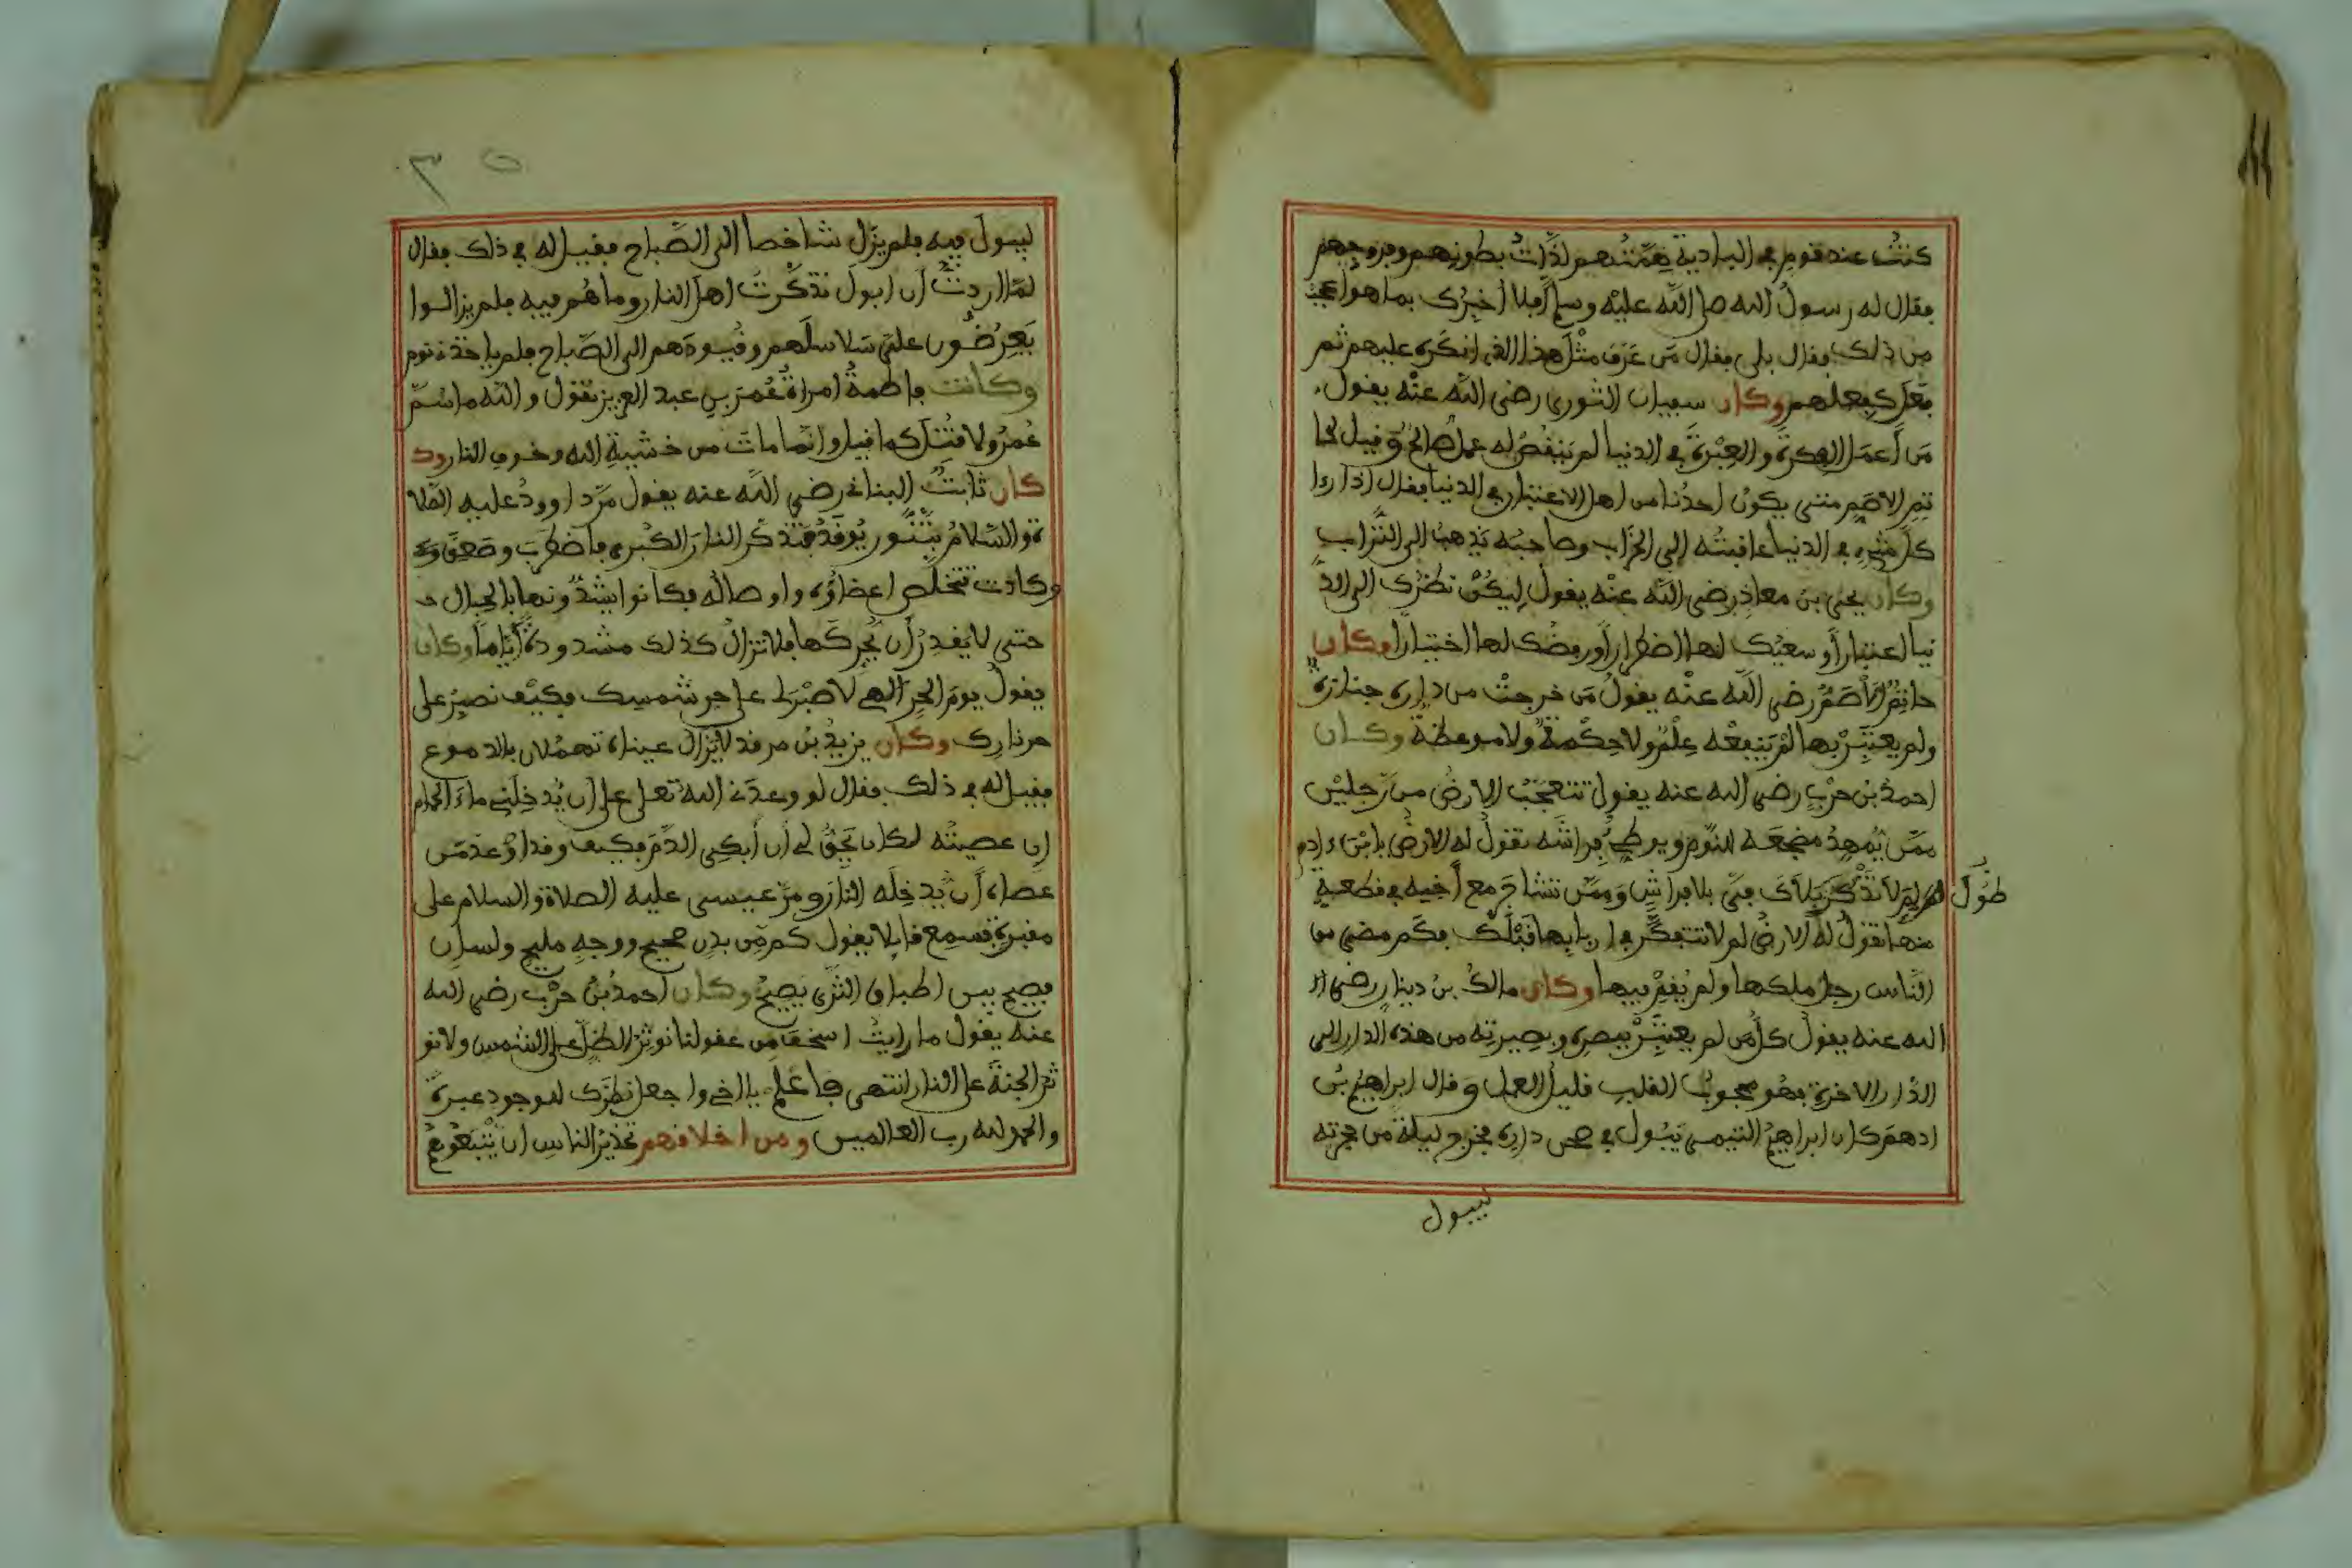 كنتُ عند قوم في البادية هِمَّتُهم لذَّاتُ بطونِهم وفروجِهم
فقال له رسولُ الله صلى اللَّه عليْه وسلم أفلا أخبِرُك بما هو أعجبُ
من ذلك فقال بلى فقال مَن عَرَف مثْلَ هذا الذي انكَره عليهم ثم
فعَل كفعلهم وكان سفيان الثوري رضي الله عنْه يقول
مَن أعمَل الفِكرةَ والعِبْرةَ في الدنيا لم يَنقُصْ له عملُ صالحٌ وقيل لحا
تمِ الاصَمِّ متى يكونُ احدُنا من اهل الاعتبار في الدنيا فقال اذا رءا
كلَّ شيْءٍ في الدنيا عاقبتُه إلى الخَرَاب وصاحبُه يَذهبُ الى التُّرَاب
وكان يحيى بن معاذٍ رضي اللَّه عنْه يقول لِيكُنْ نظرُك الى الدُّ
نيا اعتباراً وسعيُك لها اضطراراً ورفضُك لها اختياراً وكان
حاتِمُ الأصَمُّ رضي اللَّه عنْه يقولُ مَن خرجتْ من داره جنازةٌ
ولم يعتبِرْ بها لمْ يَنفعْه عِلْمٌ ولا حِكْمةٌ ولا موعظةٌ وكان
احمدُ بن حرْبٍ رضي الله عنه يقول تتعجَّبُ الارضُ من رَجليْن
ممَّن يُمهِدُ مضجَعَه للنَّوم ويوطئ فِراشَه تقولُ له الارضُ يا ابْنَ ءادم
لم لا تَذْكُر طُولَ بَلاَك فيَّ بلا فراشٍ وممَّن تشاجَر مع أخيه في قطعةٍ
منها تقولُ له الارضُ لم لا تتفكَّر في اربابِها قَبْلَك فكَم مضى من
النَّاس رجلٌ ملكها ولم يُقِمْ فيها وكان مالكُ بن دينارٍ رضي ا
الله عنه يقولُ كلُّ مَن لم يعتبِرْ ببصرِه وبصيرتِه من هذه الدار الى
الدَّار الاخرة فهُو محجوبُ القلبِ قليلُ العمل وقال ابراهيمُ بنُ
ادهمَ كان ابراهيمُ التيمي يَبُول في صحن دارِه فخرج ليلةً من حجرته
ليبول
٣٥
ليبولَ فيه فلم يزَل شاخصا الى الصَّباح فقيل له في ذلك فقال
لمَّا اردتُّ أن ابولَ تذكَّرتُ اهلَ النار وما هُم فيه فلم يزالوا
يَعرِضُون عليَّ سَلاسلَهم وقُيودَهم الى الصَّباح فلم ياخذني نوم
وكانت فاطمةُ امراةُ عُمَرَ بن عبد العزيز تقول والله ما سُمَّ
عُمرُ ولا قُتل كما قيل وانَّما ماتَ من خشيةِ الله وخوفِ النار وك
كان ثابتٌ البناني رضي اللَّه عنه يقول مَرَّ داوودُ عليه الصَّلا
ة والسَّلامُ بتَنُّور يُوقَدُ فتذكَّر النارَ الكُبرى فاضطرَبَ وصَعِقَ وك
وكادت تتخلَّص اعضاؤه واوصالُه فكانوا يشدُّونها بالحبال ح
حتى لا يَقدِرُ أن يُحرِّكَها فلا تزالُ كذلك مشدودةً أيَّاماً وكان
يقولُ يومَ الحرِّ الهي لا صبْرَ لي على حر شمسِك فكيْف نصبِرُ على
حر نارِك وكان يزيدُ بن مرثد لا تزال عيناه تهمُلان بالدموع
فقيل له في ذلك فقال لو وعدَني اللهُ تعلى على أن يُدخِلَني ماءَ الحمام
إن عصيتُه لكان يَحِقُّ لي أن أبكيَ الدَّمَ فكيف وقد أوْعدَ مَن
عصاه أن يُدخِلَه النارَ ومرَّ عيسى عليه الصلاة والسلام على
مقبرةٍ فسمِع قائلا يقول كم مِن بدنٍ صحيحٍ ووجهٍ مليحٍ ولسانٍ
فصيح بين اطباق الثرَى يَصيحُ وكان احمدُ بنُ حرْب رضي الله
عنه يقول ما رايتُ اسخفَ مِن عقولنا نوثِرُ الظِّلَّ على الشمس ولا نو
ثر الجنةَ على النار انتهى فاعلم يا اخي واجعل نظرَك للوجود عبرةً
والحمد لله رب العالمين ومن اخلاقهم تحذيرُ الناسِ ان يَتْبَعُوهُم